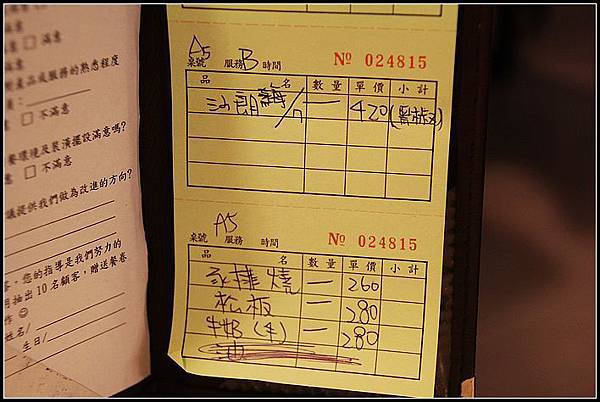 滿意
產品或服務的熟悉程度
不滿意
餐環境及裝潢擺設滿意嗎?
不滿意
議提供我們做為改進的方向?
客,您的指導是我們努力的
月抽出10名顧客,贈送餐卷
作☺
姓名/
生日/
A5 B
桌號 服務 時間 № 024815
品名 數量 單價 小計
沙朗 一 420(黑椒)
A5
桌號 服務 時間 № 024815
品名 數量 單價 小計
豕排燒 一 260
松板 一 280
(4) 一 280